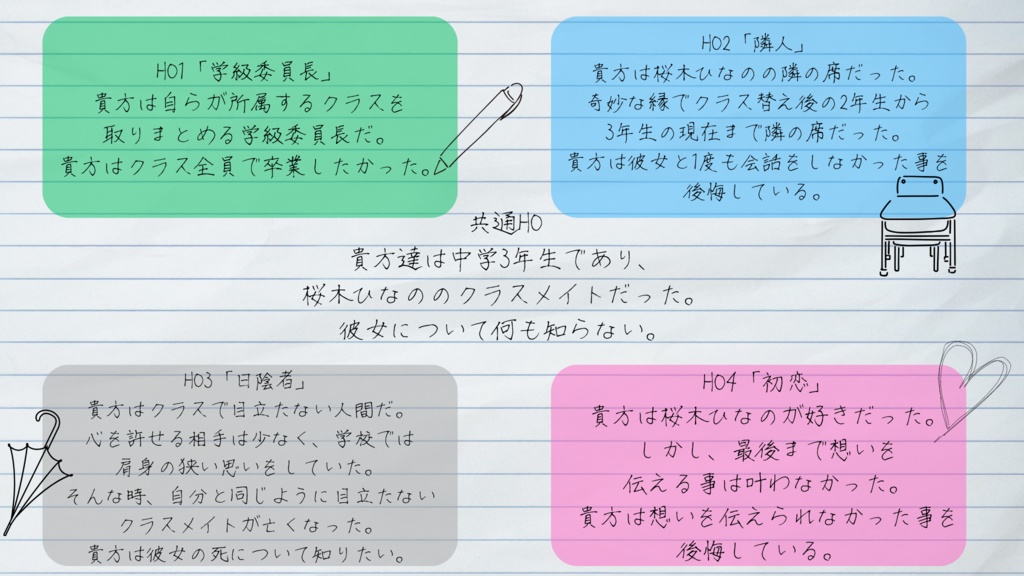 HO1「学級委員長」
貴方は自らが所属するクラスを
取りまとめる学級委員長だ。
貴方はクラス全員で卒業したかった。
HO2「隣人」
貴方は桜木ひなのの隣の席だった。
奇妙な縁でクラス替え後の2年生から
3年生の現在まで隣の席だった。
貴方は彼女と1度も会話をしなかった事を
後悔している。
共通HO
貴方達は中学3年生であり、
桜木ひなののクラスメイトだった。
彼女について何も知らない。
HO3「日陰者」
貴方はクラスで目立たない人間だ。
心を許せる相手は少なく、学校では
肩身の狭い思いをしていた。
そんな時、自分と同じように目立たない
クラスメイトが亡くなった。
貴方は彼女の死について知りたい。
HO4「初恋」
貴方は桜木ひなのが好きだった。
しかし、最後まで想いを
伝える事は叶わなかった。
貴方は想いを伝えられなかった事を
後悔している。